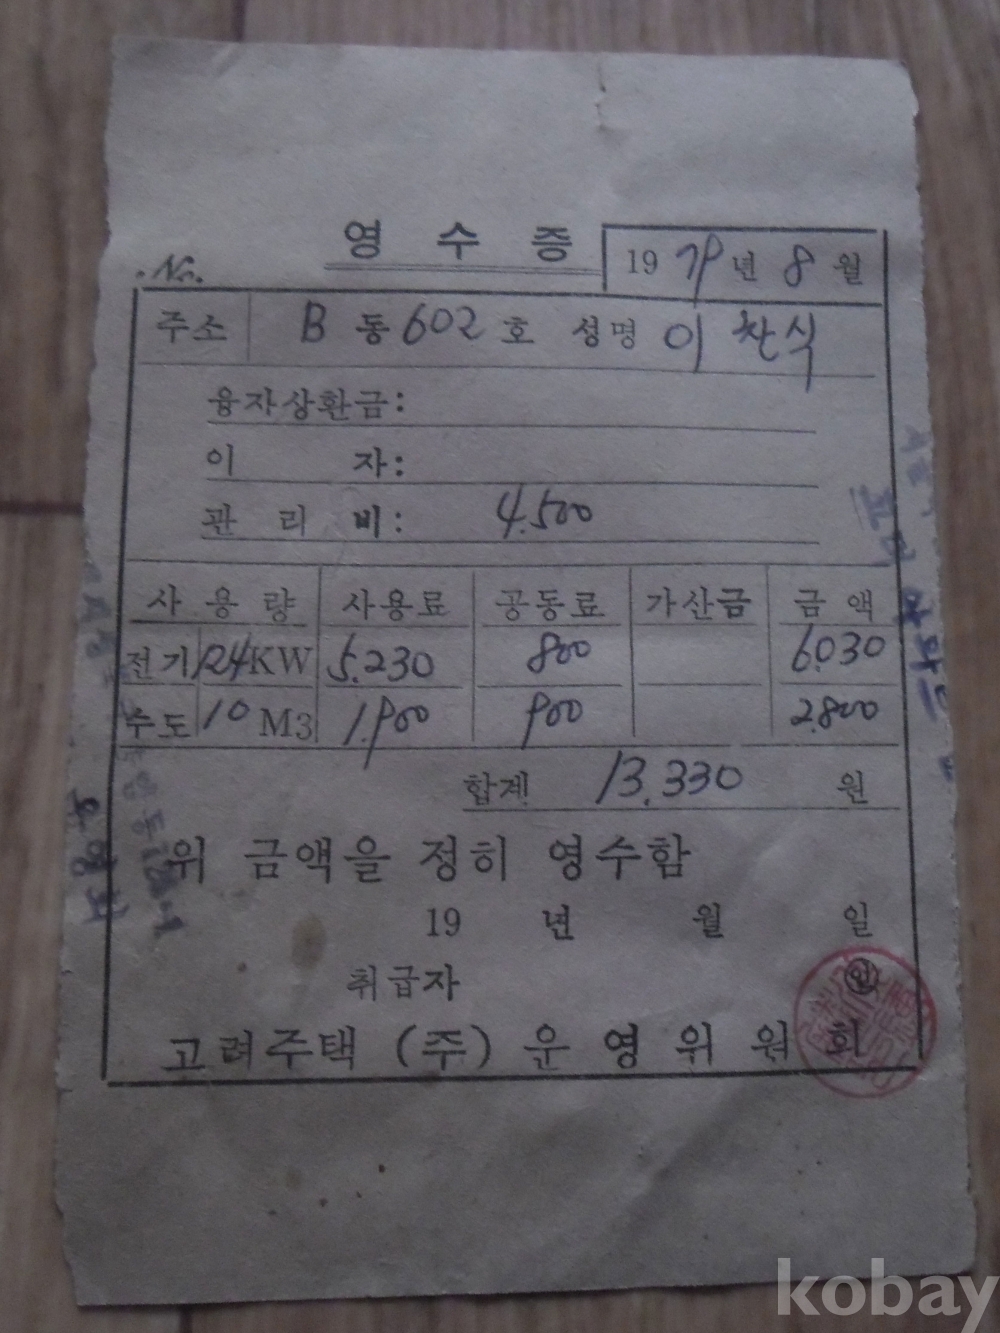 영 수 증
19 79 년 8 월
No.
주소 B 동 602 호 성명 이 찬식
융자상환금:
이 자:
관 리 비: 4.500
사 용 량 사용료 공동료 가산금 금 액
전기 124 KW 5.230 800 6030
수도 10 M3 1.900 900 2.800
합계 13.330 원
위 금액을 정히 영수함
19 년 월 일
취급자 ㊞
고려주택 (주) 운 영 위 원 회
kobay